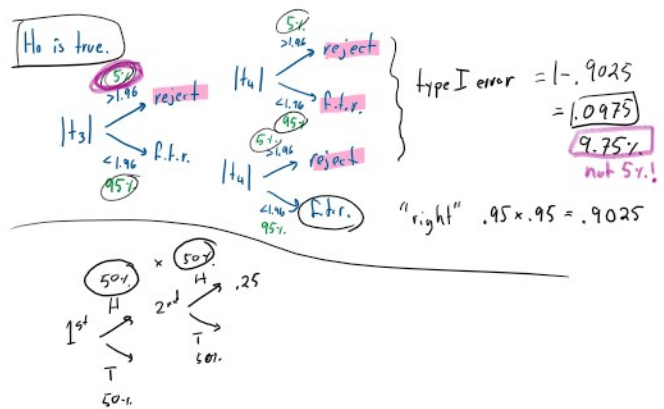 Ho is true.
5%
>1.96
reject
|t3|
<1.96
f.t.r.
95%
5%
>1.96
reject
|t4|
<1.96
f.t.r.
95%
5%
>1.96
reject
|t4|
<1.96
f.t.r.
95%
type I error = 1-.9025
= .0975
9.75%
not 5%!
"right" .95 x .95 = .9025
50% x 50%
H
H
.25
1st
2nd
T
T
50%
50%